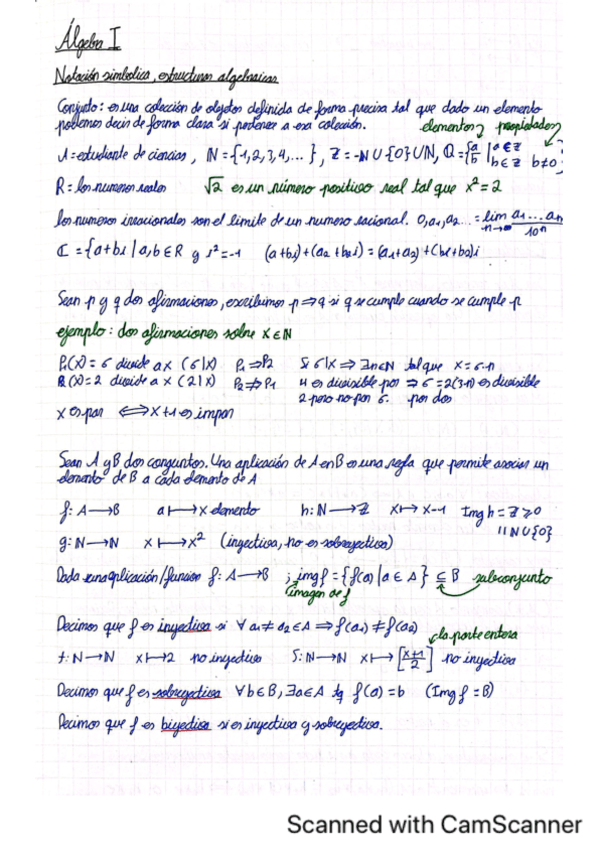 Álgebra I
Notación simbolica, estructuras algebraicas
Conjunto: es una colección de objetos definida de forma precisa tal que dado un elemento
podemos decir de forma clara si pertenece a esa colección.
elementos propiedades
A = estudiante de ciencias, ℕ = {1,2,3,4,... }, ℤ = -ℕ ∪ {0} ∪ ℕ, ℚ = {a/b | a ∈ ℤ b ∈ ℤ b ≠ 0}
R = los numeros reales √2 es un número positivo real tal que x² = 2
los numeros irracionales son el limite de un numero racional. 0,a₁,a₂... = lim n→∞ a₁...aₙ/10ⁿ
ℂ = {a+bi | a,b ∈ R y i² = -1 (a+bi)+(a₂+b₂i) = (a₁+a₂)+(b₁+b₂)i
Sean p y q dos afirmaciones, escribimos p ⇒ q si q se cumple cuando se cumple p
ejemplo: dos afirmaciones sobre x ∈ ℕ
P₁(x) = 6 divide a x (6|x) P₁ ⇒ P₂ Si 6|x ⇒ ∃n∈ℕ tal que x = 6·n
P₂(x) = 2 divide a x (2|x) P₂ ⇏ P₁ 4 es divisible por ⇒ 6 = 2(3·n) es divisible
2 pero no por 6. por dos
x es par ⟺ x+1 es impar
Sean A y B dos conjuntos. Una aplicación de A en B es una regla que permite asociar un
elemento de B a cada elemento de A
f: A → B a ↦ x elemento h: ℕ → ℤ x ↦ x-1 Img h = ℤ ≥ 0
|| ℕ ∪ {0}
g: ℕ → ℕ x ↦ x² (inyectiva, no es sobreyectiva)
Dada una aplicación/funcion f: A → B ; img f = {f(a) | a ∈ A} ⊆ B subconjunto
imagen de f
Decimos que f es inyectiva si ∀ a₁ ≠ a₂ ∈ A ⇒ f(a₁) ≠ f(a₂)
la parte entera
t: ℕ → ℕ x ↦ 2 no inyectiva S: ℕ → ℕ x ↦ [x+1/2] no inyectiva
Decimos que f es sobreyectiva ∀b∈B, ∃a∈A tq f(a) = b (Img f = B)
Decimos que f es biyectiva si es inyectiva y sobreyectiva.
Scanned with CamScanner